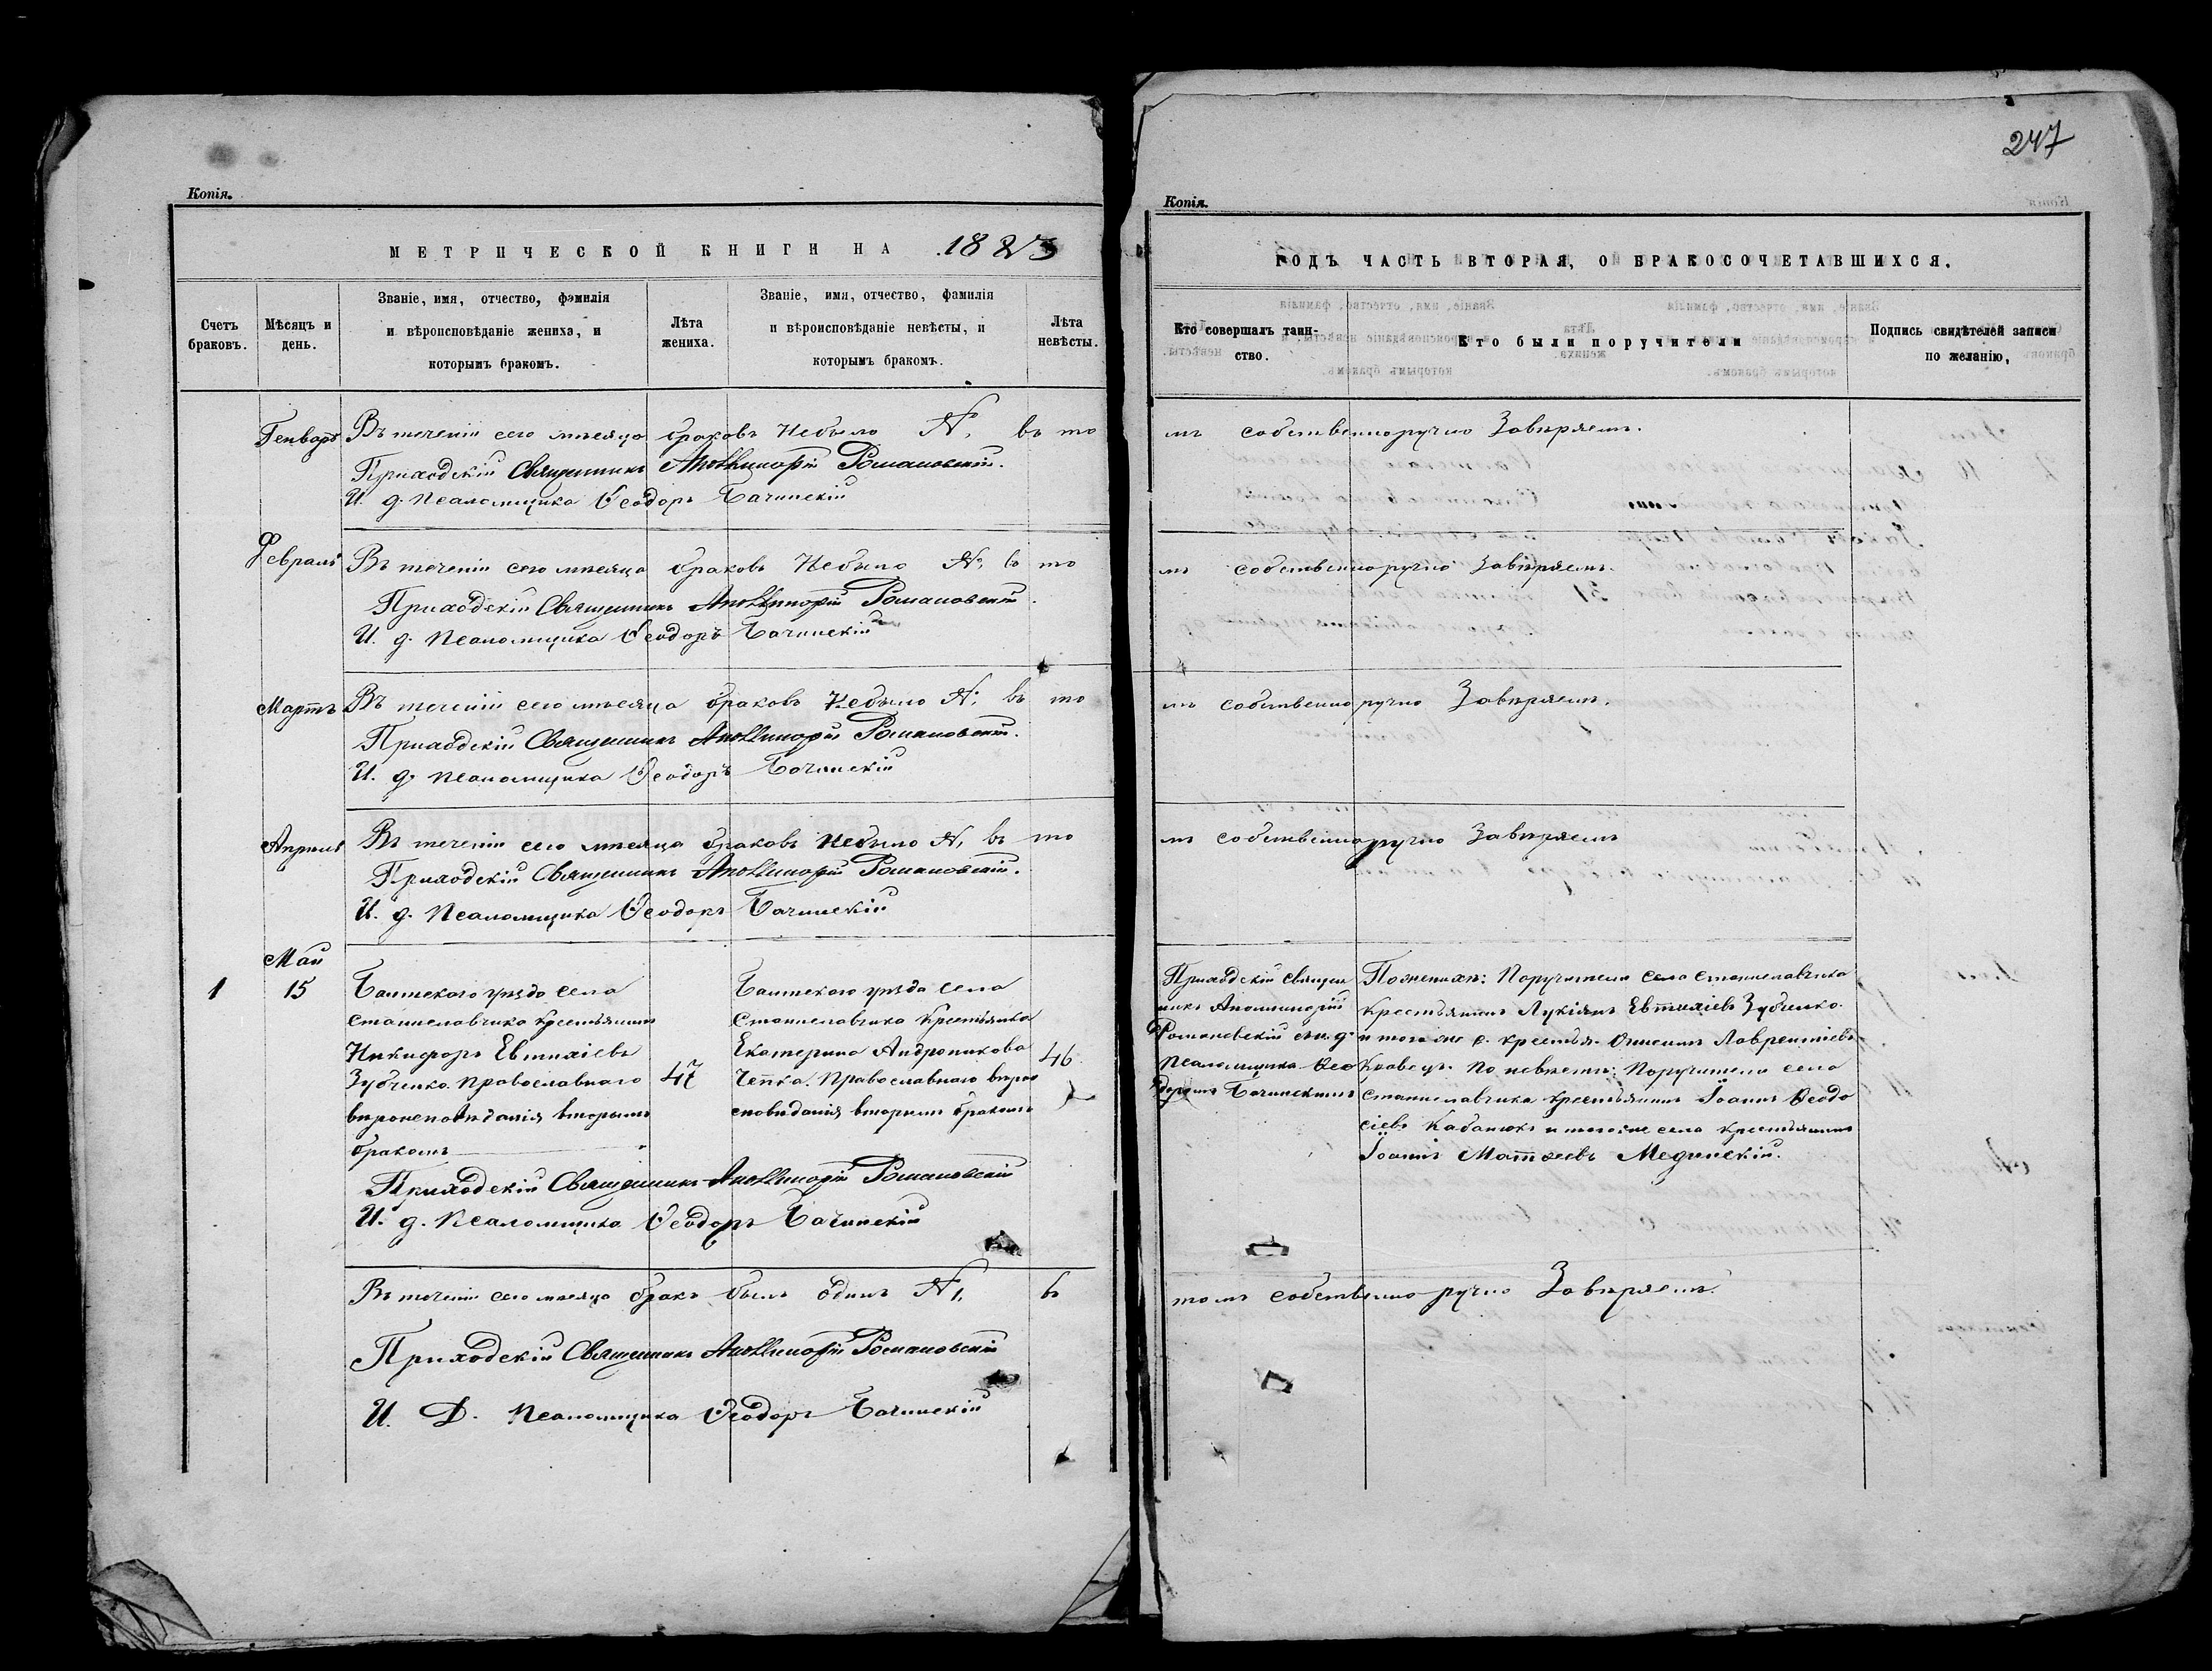 247
Копія.
МЕТРИЧЕСКОЙ КНИГИ НА 188
Счетъ браковъ.
Мѣсяцъ и день.
Званіе, имя, отчество, фамилія
и вѣроисповѣданіе жениха, и
которымъ бракомъ.
Лѣта жениха.
Званіе, имя, отчество, фамилія
и вѣроисповѣданіе невѣсты, и
которымъ бракомъ.
Лѣта невѣсты.
Генварь Въ теченіи сего мѣсяца браковъ Небыло №, въ то
Приходскій Священникъ Аполлинарій Романовскій.
И. д. Псаломщика Ѳеодоръ Бачинскій
Февраль Въ теченіи сего мѣсяца браковъ Небыло №, въ то
Приходскій Священникъ Аполлинарій Романовскій.
И. д. Псаломщика Ѳеодоръ Бачинскій
Мартъ Въ теченіи сего мѣсяца браковъ Небыло №, въ то
Приходскій Священникъ Аполлинарій Романовскій.
И. д. Псаломщика Ѳеодоръ Бачинскій
Апрель Въ теченіи сего мѣсяца браковъ Небыло №, въ то
Приходскій Священникъ Аполлинарій Романовскій.
И. д. Псаломщика Ѳеодоръ Бачинскій
Май
1 15
Балтскаго уѣзда села
Станиславчика крестьянинъ
Никифоръ Евтихіевъ
Зубченко. Православнаго
вѣроисповѣданія вторымъ
бракомъ
47
Балтскаго уѣзда села
Станиславчика Крестьянка
Екатерина Андроникова
Православнаго вѣрои
сповѣданія вторымъ бракомъ
46
Приходскій Священникъ Аполлинарій Романовскій
И. д. Псаломщика Ѳеодоръ Бачинскій
Въ теченіи сего мѣсяца бракъ былъ одинъ № 1, въ
Приходскій Священникъ Аполлинарій Романовскій
И. Д. Псаломщика Ѳеодоръ Бачинскій
Копія.
ГОДЪ ЧАСТЬ ВТОРАЯ, О БРАКОСОЧЕТАВШИХСЯ.
Кто совершалъ таин-
ство.
Кто были поручители
Подпись свидѣтелей записи
по желанію,
мъ собственноручно Завѣряемъ.
мъ собственноручно Завѣряемъ.
мъ собственноручно Завѣряемъ.
мъ собственноручно Завѣряемъ
Приходскій Священ
никъ Аполинарій
Романовскій съ и. д.
Псаломщика Ѳео
доромъ Бачинскимъ
По женихѣ: Поручители села Станиславчика
Крестьянинъ Лукіянъ Евтихіевъ Зубченко.
и того же с. крестья. Лаврентіевъ
Кравецъ. По невѣстѣ: Поручители села
Станиславчика крестьянинъ Іоаннъ Ѳеодо
сіевъ и того же села крестьянинъ
Іоаннъ Матѳеевъ Мединскій.
томъ собственно ручно Завѣряемъ.